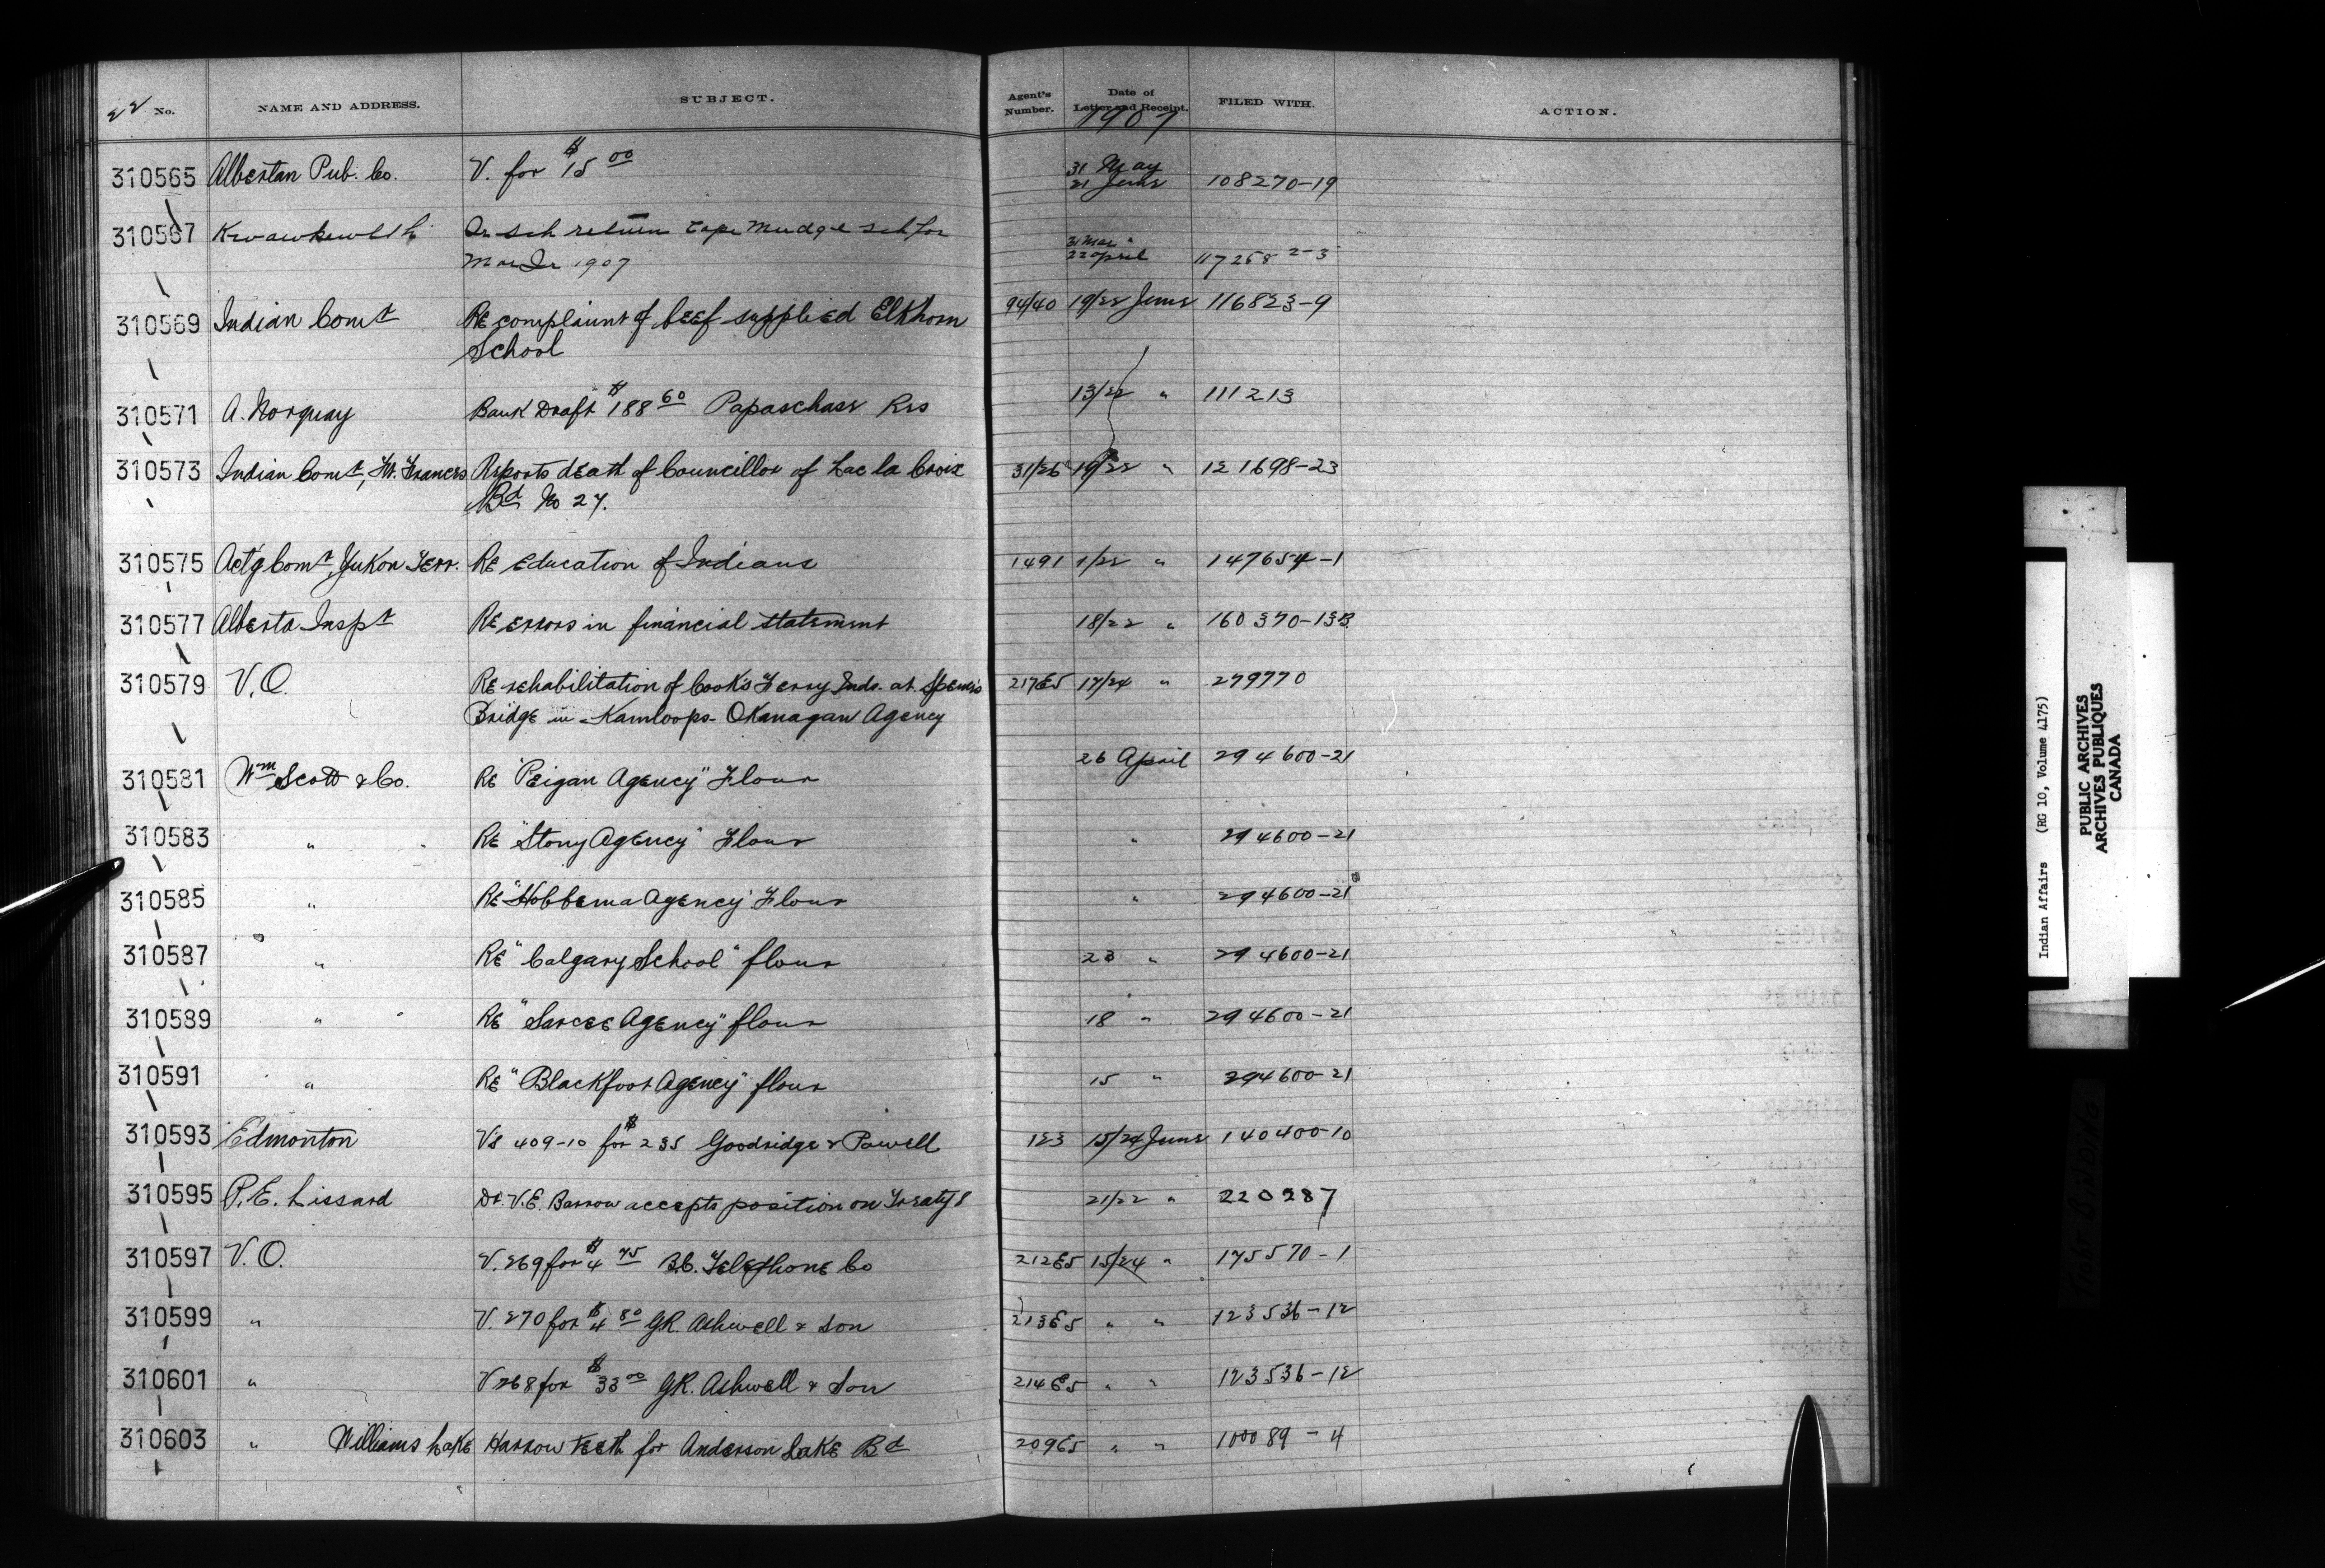 22 No. NAME AND ADDRESS. SUBJECT. Agent's Number. Date of Letter and Receipt. FILED WITH. ACTION.
1907
310565 Albertan Pub. Co. V. for $15 00 31 May 21 June 108270-19
310567 Kwawkewlth Qr sch return Cape Mudge sch for 31 Mar 22 April 117258 2-3
Mar Qr 1907
310569 Indian Comr RE complaint of beef supplied Elkhorn 94/40 19/22 June 116823-9
School
310571 A. Norquay Bank Draft $188 60 Papaschase Res 13/22 " 111213
310573 Indian Comr, Ft. Frances Reports death of Councillor of Lac la Croix 31/26 19/22 " 121698-23
Bd No 27.
310575 Act'g Comr, Yukon Terr. RE Education of Indians 1491 1/22 " 147654-1
310577 Alberta Inspr RE errors in financial statement 18/22 " 160370-13B
310579 V.O. RE rehabilitation of Cook's Ferry Inds. at Spence's 217E5 17/24 " 279770
Bridge in Kamloops-Okanagan Agency
310581 Wm Scott & Co. RE "Peigan Agency" Flour 26 April 294600-21
310583 " RE "Stony Agency" Flour " 294600-21
310585 " RE "Hobbema Agency" Flour " 294600-21
310587 " RE "Calgary School" flour 23 " 294600-21
310589 " RE "Sarcee Agency" flour 18 " 294600-21
310591 " RE "Blackfoot Agency" flour 15 " 294600-21
310593 Edmonton Vs 409-10 for $235 Goodridge & Powell 123 15/24 June 140400-10
310595 P.E. Lissard Dr. V.E. Barrow accepts position on Treaty 8 21/22 " 220287
310597 V.O. V. 269 for $4 75 B.C. Telephone Co 212E5 15/24 " 175570-1
310599 " V. 270 for $4 80 G.R. Ashwell & Son 213E5 " " 123536-12
310601 " V 268 for $33 00 G.R. Ashwell & Son 214E5 " " 123536-12
310603 " Williams Lake Harrow teeth for Anderson Lake Bd 209E5 " " 100089-4
Indian Affairs (RG 10, Volume 4175)
PUBLIC ARCHIVES
ARCHIVES PUBLIQUES
CANADA